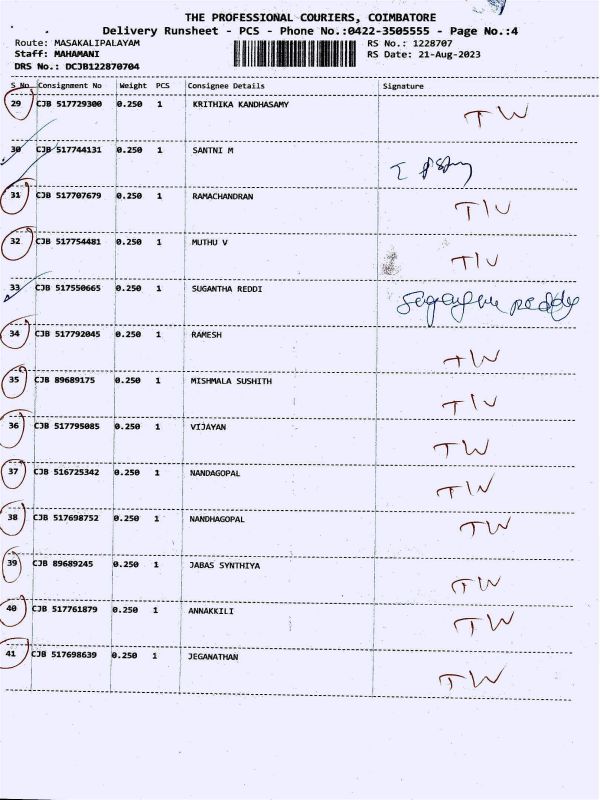 THE PROFESSIONAL COURIERS, COIMBATORE
Delivery Runsheet - PCS - Phone No.:0422-3505555 - Page No.:4
Route: MASAKALIPALAYAM RS No.: 1228707
Staff: MAHAMANI RS Date: 21-Aug-2023
DRS No.: DCJB122870704
S No Consignment No Weight PCS Consignee Details Signature
29 CJB 517729300 0.250 1 KRITHIKA KANDHASAMY TW
30 CJB 517744131 0.250 1 SANTNI M
31 CJB 517707679 0.250 1 RAMACHANDRAN TW
32 CJB 517754481 0.250 1 MUTHU V TW
33 CJB 517550665 0.250 1 SUGANTHA REDDI
34 CJB 517792045 0.250 1 RAMESH TW
35 CJB 89689175 0.250 1 MISHMALA SUSHITH TW
36 CJB 517795085 0.250 1 VIJAYAN TW
37 CJB 516725342 0.250 1 NANDAGOPAL TW
38 CJB 517698752 0.250 1 NANDHAGOPAL TW
39 CJB 89689245 0.250 1 JABAS SYNTHIYA TW
40 CJB 517761879 0.250 1 ANNAKKILI TW
41 CJB 517698639 0.250 1 JEGANATHAN TW